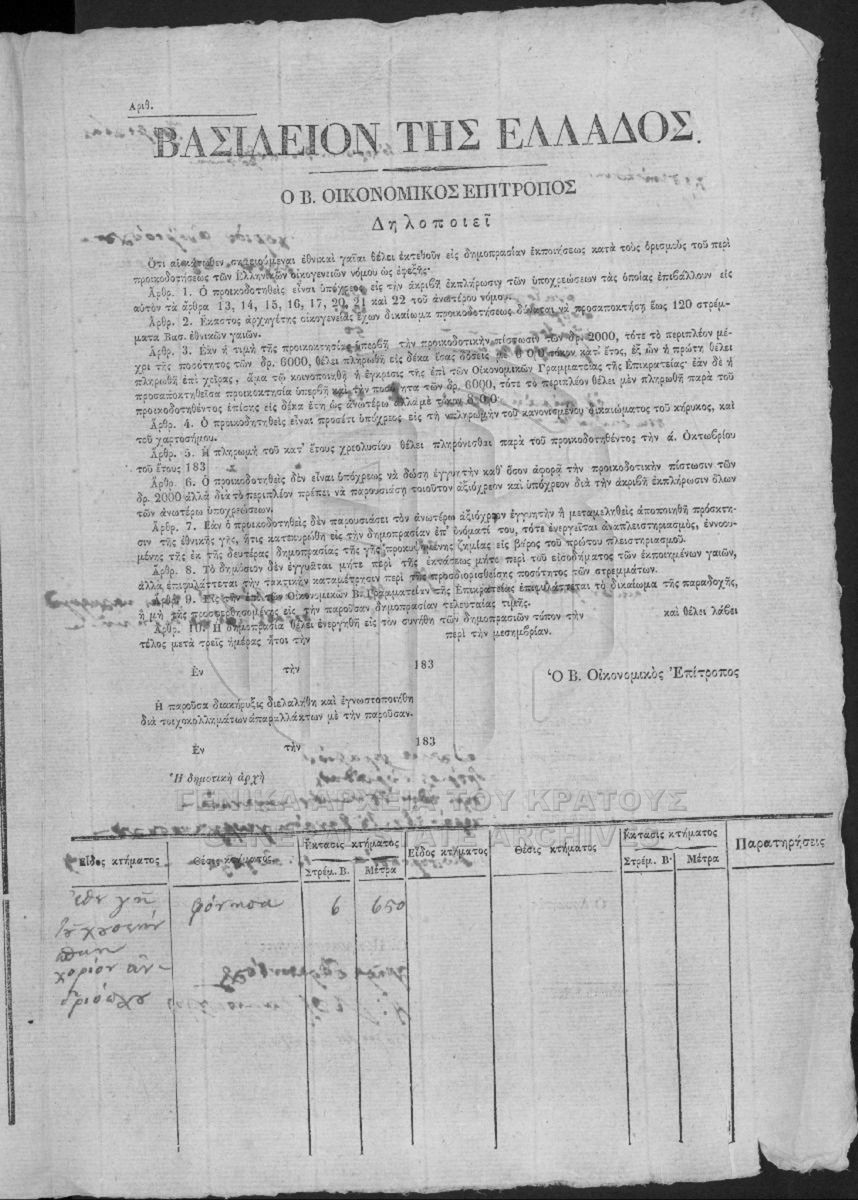 Αριθ.
ΒΑΣΙΛΕΙΟΝ ΤΗΣ ΕΛΛΑΔΟΣ.
Ο Β. ΟΙΚΟΝΟΜΙΚΟΣ ΕΠΙΤΡΟΠΟΣ
Δηλοποιεῖ
Ότι αἱ κάτωθεν σημειούμεναι ἐθνικαὶ γαῖαι θέλει ἐκτεθοῦν εἰς δημοπρασίαν ἐκποιήσεως κατὰ τοὺς ὁρισμοὺς τοῦ περὶ
προικοδοτήσεως τῶν Ἑλληνικῶν οἰκογενειῶν νόμου ὡς ἐφεξῆς·
Ἄρθρ. 1. Ὁ προικοδοτηθεὶς εἶναι ὑπόχρεος εἰς τὴν ἀκριβῆ ἐκπλήρωσιν τῶν ὑποχρεώσεων τὰς ὁποίας ἐπιβάλλουν εἰς
αὐτὸν τὰ ἄρθρα 13, 14, 15, 16, 17, 20, 21 καὶ 22 τοῦ ἀνωτέρω νόμου.
Ἄρθρ. 2. Ἕκαστος ἀρχηγέτης οἰκογενείας ἔχων δικαίωμα προικοδοτήσεως δύναται νὰ προσαποκτήσῃ ἕως 120 στρέμ-
ματα Βασ. ἐθνικῶν γαιῶν.
Ἄρθρ. 3. Ἐὰν ἡ τιμὴ τῆς προικοκτησίας ὑπερβῇ τὴν προικοδοτικὴν πίστωσιν τῶν δρ. 2000, τότε τὸ περιπλέον μέ-
χρι τῆς ποσότητος τῶν δρ. 6000, θέλει πληρωθῆ εἰς δέκα ἴσας δόσεις μὲ 6 0/0 τόκον κατ' ἔτος, ἐξ ὧν ἡ πρώτη θέλει
πληρωθῆ ἐπὶ χεῖρας, ἅμα τῷ κοινοποιηθῆ ἡ ἔγκρισις τῆς ἐπὶ τῶν Οἰκονομικῶν Γραμματείας τῆς Ἐπικρατείας· ἐὰν δὲ ἡ
προσαποκτηθεῖσα προικοκτησία ὑπερβῇ καὶ τὴν ποσότητα τῶν δρ. 6000, τότε τὸ περιπλέον θέλει μὲν πληρωθῆ παρὰ τοῦ
προικοδοτηθέντος ἐπίσης εἰς δέκα ἔτη ὡς ἀνωτέρω ἀλλὰ μὲ τόκον 8 0/0
Ἄρθρ. 4. Ὁ προικοδοτηθεὶς εἶναι προσέτι ὑπόχρεος εἰς τὴν πληρωμὴν τοῦ κανονισμένου δικαιώματος τοῦ κήρυκος, καὶ
τοῦ χαρτοσήμου.
Ἄρθρ. 5. Ἡ πληρωμὴ τοῦ κατ' ἔτους χρεολυσίου θέλει πληρόνεσθαι παρὰ τοῦ προικοδοτηθέντος τὴν ά. Ὀκτωβρίου
τοῦ ἔτους 183
Ἄρθρ. 6. Ὁ προικοδοτηθεὶς δὲν εἶναι ὑπόχρεως νὰ δώσῃ ἐγγυητὴν καθ' ὅσον ἀφορᾷ τὴν προικοδοτικὴν πίστωσιν τῶν
δρ. 2000 ἀλλὰ διὰ τὸ περιπλέον πρέπει νὰ παρουσιάσῃ τοιοῦτον ἀξιόχρεον καὶ ὑπόχρεον διὰ τὴν ἀκριβῆ ἐκπλήρωσιν ὅλων
τῶν ἀνωτέρω ὑποχρεώσεων.
Ἄρθρ. 7. Ἐὰν ὁ προικοδοτηθεὶς δὲν παρουσιάσει τὸν ἀνωτέρω ἀξιόχρεων ἐγγυητὴν ἢ μεταμεληθεὶς ἀποποιηθῆ τὴν πρόσκτη-
σιν τῆς ἐθνικῆς γῆς, ἥτις κατεκυρώθη εἰς τὴν δημοπρασίαν ἐπ' ὀνόματί του, τότε ἐνεργεῖται ἀναπλειστηριασμὸς, ἐννοου-
μένης τῆς ἐκ τῆς δευτέρας δημοπρασίας τῆς γῆς προκυψαμένης ζημίας εἰς βάρος τοῦ πρώτου πλειστηριασμοῦ.
Ἄρθρ. 8. Τὸ δημόσιον δὲν ἐγγυᾶται μήτε περὶ τῆς ἐκτάσεως μήτε περὶ τοῦ εἰσοδήματος τῶν ἐκποιημένων γαιῶν,
ἀλλὰ ἐπιφυλάττεται τὴν τακτικὴν καταμέτρησιν περὶ τῆς προσδιορισθείσης ποσότητος τῶν στρεμμάτων.
Ἄρθρ. 9. Εἰς τὴν ἐπὶ τῶν Οἰκονομικῶν Β. Γραμματείαν τῆς Ἐπικρατείας ἐπιφυλάττεται τὸ δικαίωμα τῆς παραδοχῆς,
ἢ μὴ τῆς προσφερθησομένης εἰς τὴν παροῦσαν δημοπρασίαν τελευταίας τιμῆς.
Ἄρθρ. 10. Ἡ δημοπρασία θέλει ἐνεργηθῆ εἰς τὸν συνήθη τῶν δημοπρασιῶν τύπον τὴν καὶ θέλει λάβει
τέλος μετὰ τρεῖς ἡμέρας ἤτοι τὴν περὶ τὴν μεσημβρίαν.
Ἐν τὴν 183
Ὁ Β. Οἰκονομικὸς Ἐπίτροπος
Ἡ παροῦσα διακήρυξις διελαλήθη καὶ ἐγνωστοποιήθη
διὰ τοιχοκολλημάτων ἀπαραλλάκτων μὲ τὴν παροῦσαν.
Ἐν τὴν 183
Ἡ δημοτικὴ ἀρχὴ
ΓΕΝΙΚΑ ΑΡΧΕΙΑ ΤΟΥ ΚΡΑΤΟΥΣ
GENERAL STATE ARCHIVES
Εἶδος κτήματος Θέσις κτήματος Ἔκτασις κτήματος Εἶδος κτήματος Θέσις κτήματος Ἔκτασις κτήματος Παρατηρήσεις
Στρέμ. Β. Μέτρα Στρέμ. Β. Μέτρα
ἐθν γῆ 6 650
χορίον